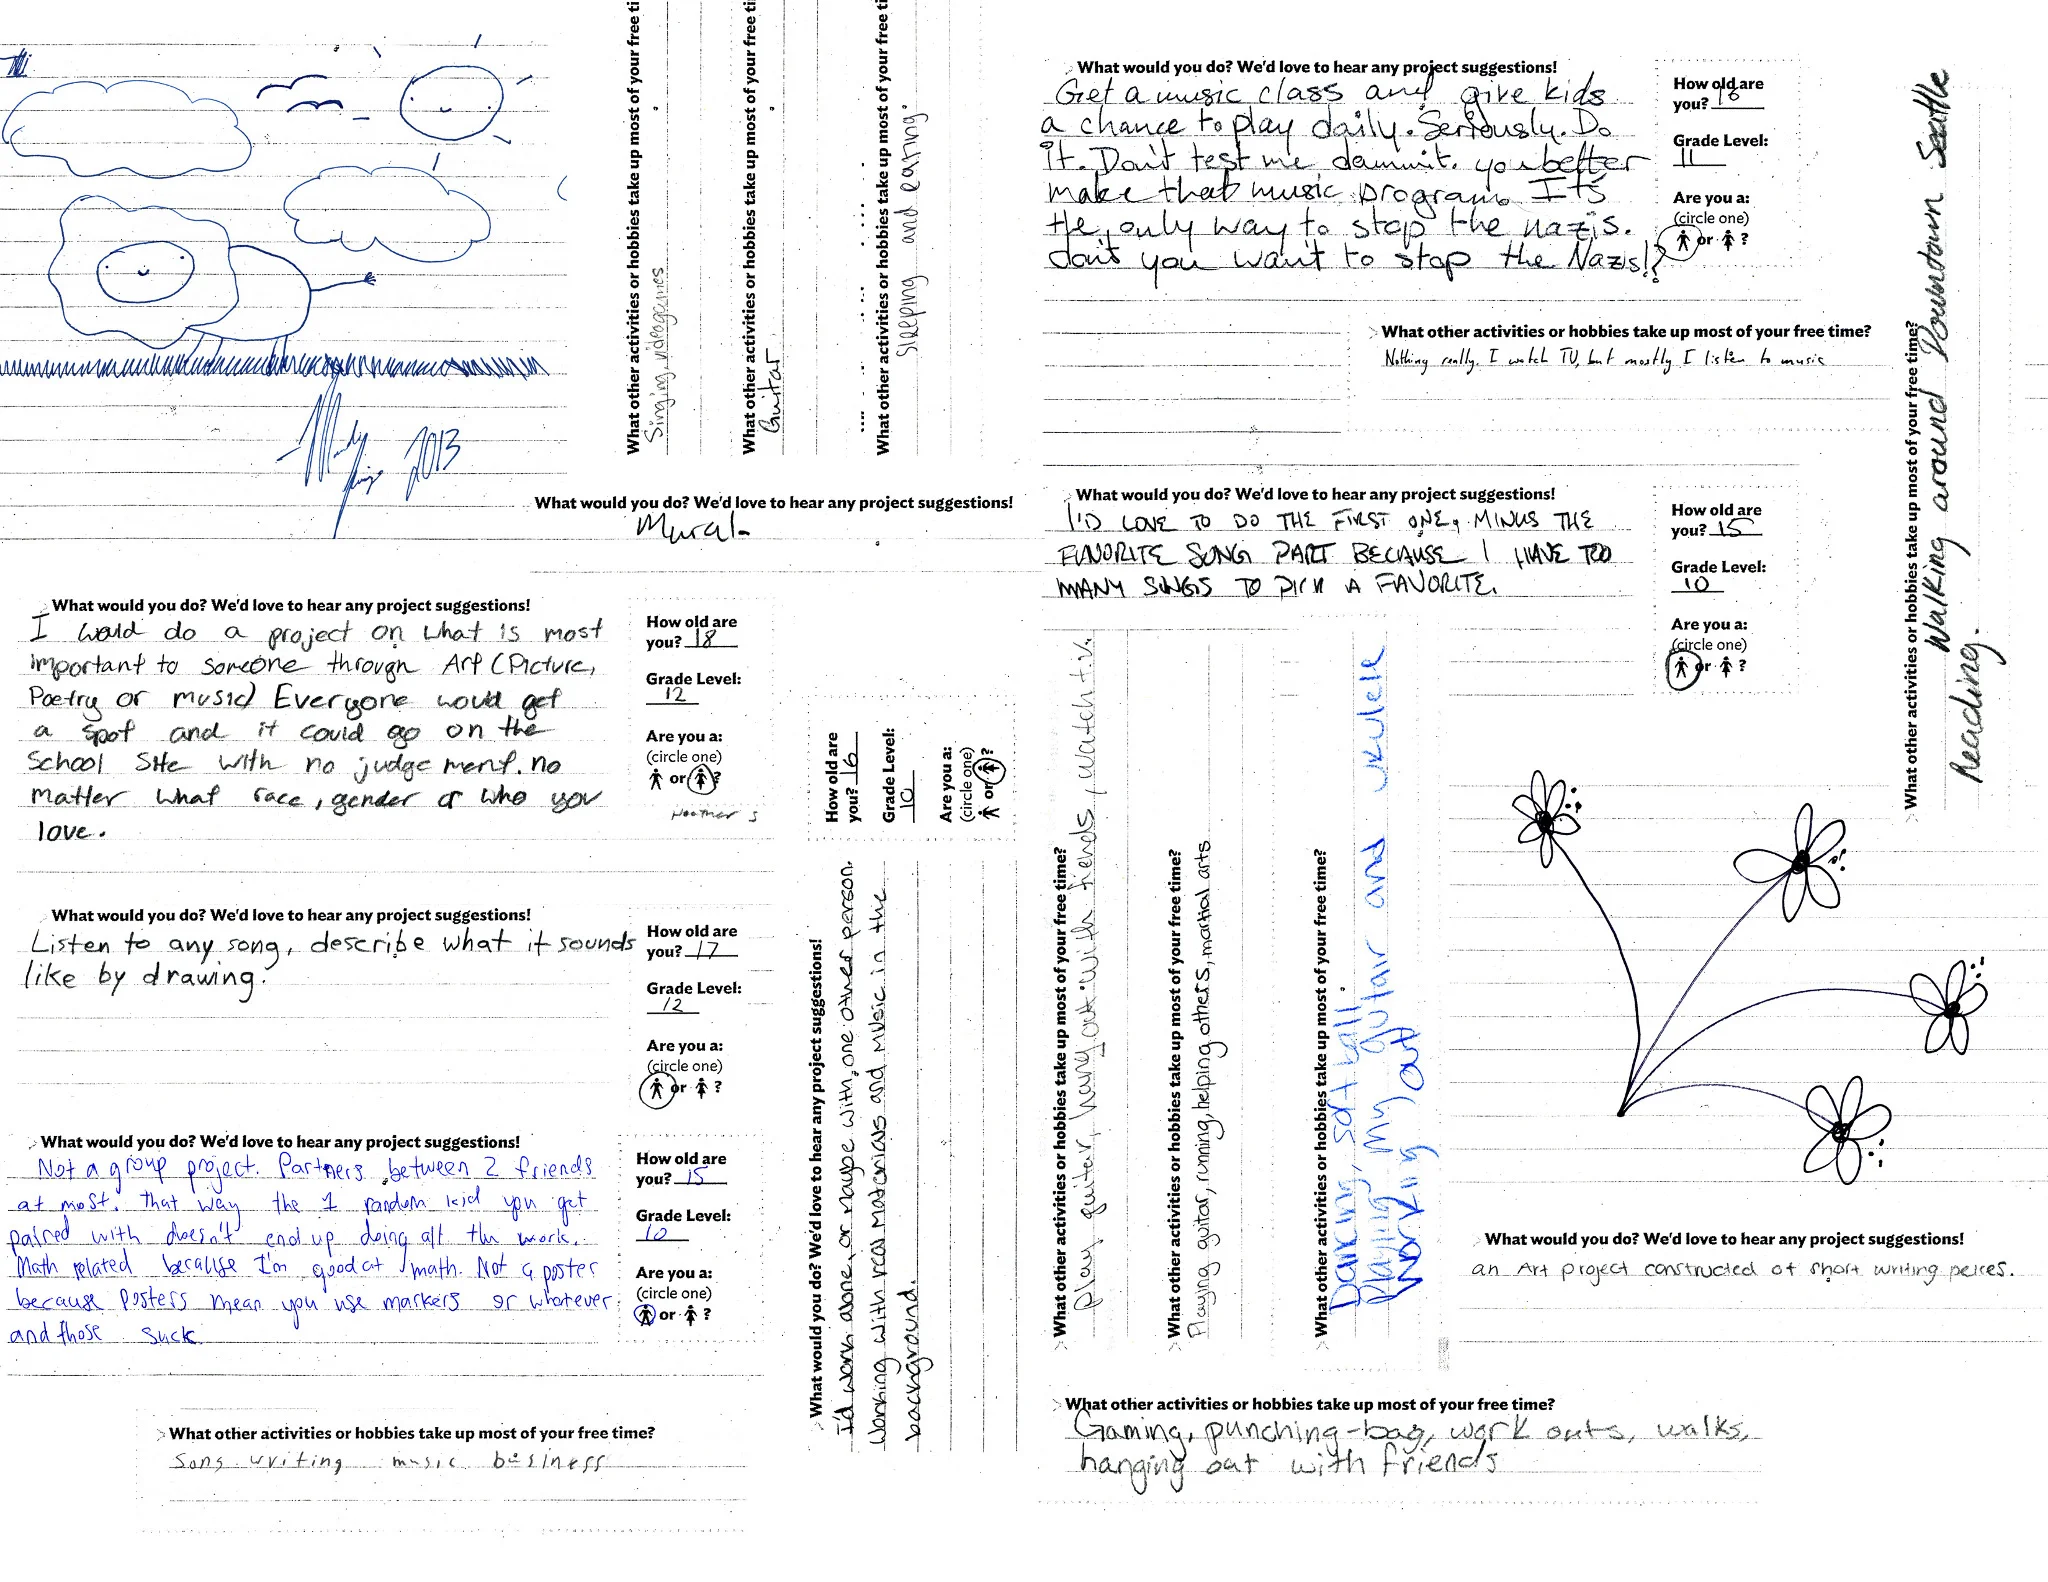 Mandy
2013
What other activities or hobbies take up most of your free ti
Singing, videogames
What other activities or hobbies take up most of your free ti
Guitar
What other activities or hobbies take up most of your free ti
Sleeping and eating.
What would you do? We'd love to hear any project suggestions!
Mural
What would you do? We'd love to hear any project suggestions!
I would do a project on what is most
important to someone through Art (Picture,
Poetry or music) Everyone would get
a spot and it could go on the
School Site with no judgement. no
matter what race, gender or who you
love.
How old are
you? 18
Grade Level:
12
Are you a:
(circle one)
or ?
Heather S
What would you do? We'd love to hear any project suggestions!
Listen to any song, describe what it sounds
like by drawing.
How old are
you? 17
Grade Level:
12
Are you a:
(circle one)
or ?
What would you do? We'd love to hear any project suggestions!
Not a group project. Partners between 2 friends
at most. That way the 1 random kid you get
paired with doesn't end up doing all the work.
Math related because I'm good at math. Not a poster
because posters mean you use markers or whatever
and those suck
How old are
you? 15
Grade Level:
10
Are you a:
(circle one)
or ?
What other activities or hobbies take up most of your free time?
Song writing music business
How old are
you? 16
Grade Level:
10
Are you a:
(circle one)
or ?
What would you do? We'd love to hear any project suggestions!
I'd work alone, or maybe with one other person.
Working with real materials and music in the
background.
What would you do? We'd love to hear any project suggestions!
Get a music class and give kids
a chance to play daily. Seriously. Do
it. Don't test me dammit. you better
make that music program. It's
the only way to stop the nazis.
don't you want to stop the Nazis!?
How old are
you? 16
Grade Level:
11
Are you a:
(circle one)
or ?
What other activities or hobbies take up most of your free time?
Nothing really. I watch TV, but mostly I listen to music
What other activities or hobbies take up most of your free time?
Walking around Downtown Seattle
Reading.
What would you do? We'd love to hear any project suggestions!
I'D LOVE TO DO THE FIRST ONE, MINUS THE
FAVORITE SONG PART BECAUSE I HAVE TOO
MANY SONGS TO PICK A FAVORITE.
How old are
you? 15
Grade Level:
10
Are you a:
(circle one)
or ?
What other activities or hobbies take up most of your free time?
play guiter, hang out with fiends, watch t.v.
What other activities or hobbies take up most of your free time?
Playing guitar, running, helping others, martial arts
What other activities or hobbies take up most of your free time?
Dancing, soft ball.
Playing My guitar and ukulele
working out
What would you do? We'd love to hear any project suggestions!
an Art project constructed of short writing peices.
What other activities or hobbies take up most of your free time?
Gaming, punching-bag, work outs, walks,
hanging out with friends